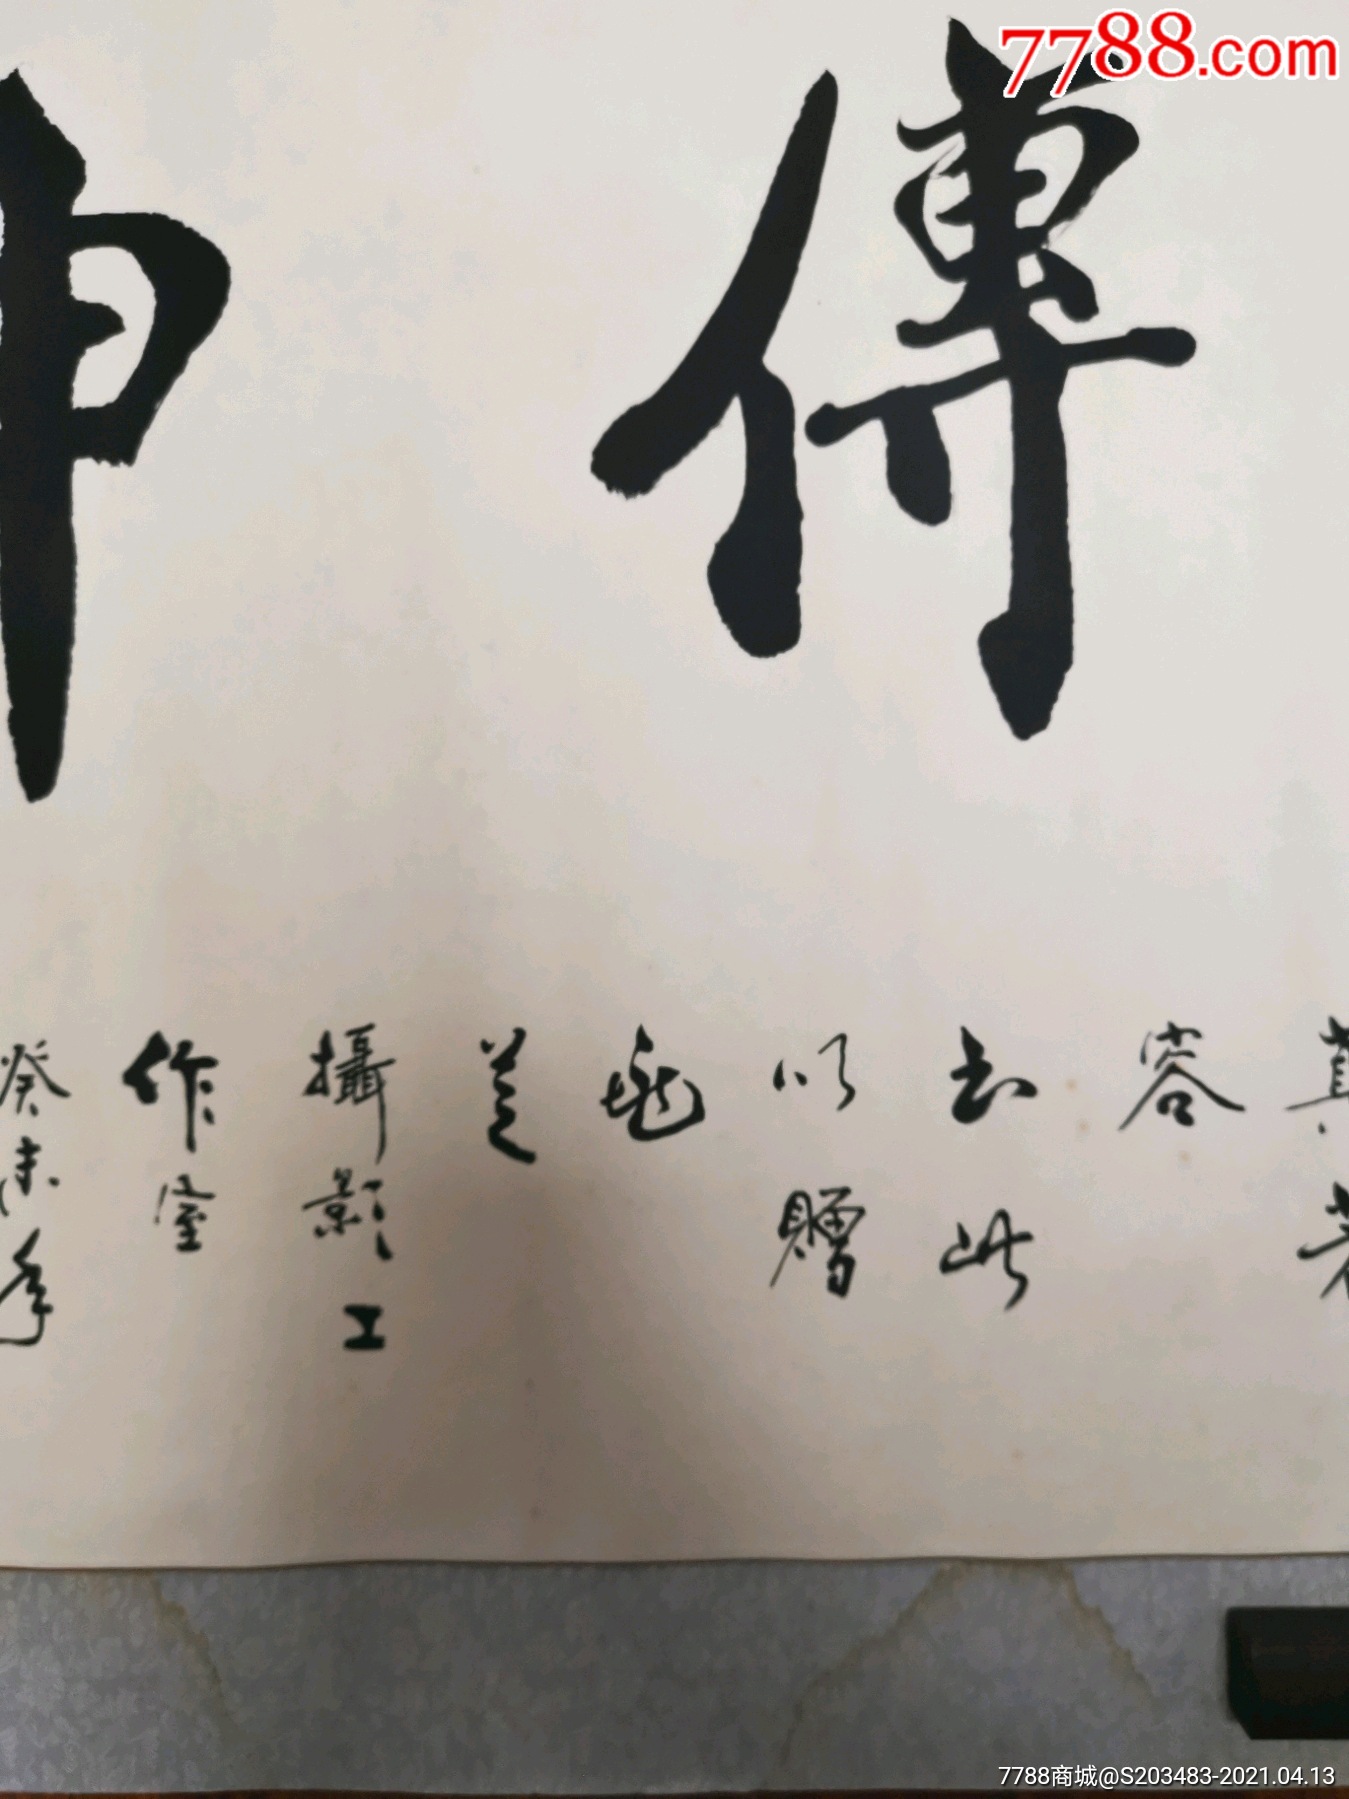 7788.com
傳
真
容
書此
以贈
攝影工
作室
癸未年
7788商城@S203483-2021.04.13